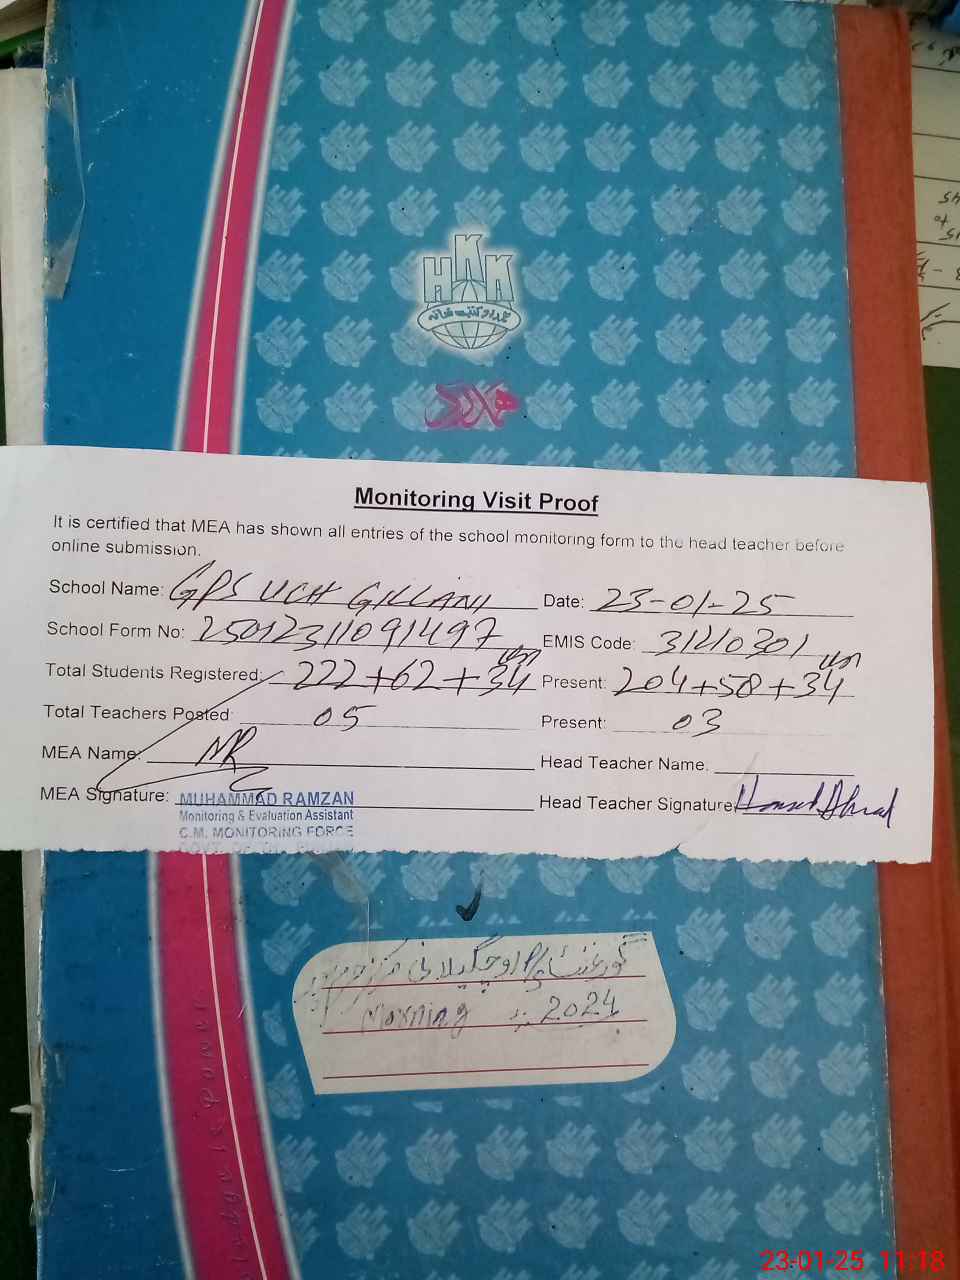 HKK
امدادکتب خانہ
ھمدرد
Monitoring Visit Proof
It is certified that MEA has shown all entries of the school monitoring form to the head teacher before
online submission.
School Name: GPS UCH GILLANI Date: 23-01-25
School Form No: 2501231109 1497 EMIS Code: 31210301
Total Students Registered: 222+62+34 Present: 204+58+34
Total Teachers Posted: 05 Present: 03
MEA Name: MR Head Teacher Name.
MEA Signature: Head Teacher Signature
MUHAMMAD RAMZAN
Monitoring & Evaluation Assistant
C.M. MONITORING FORCE
اوچگیلانی مرکز
Morning 2024
ledge is power
23-01-25 11:18